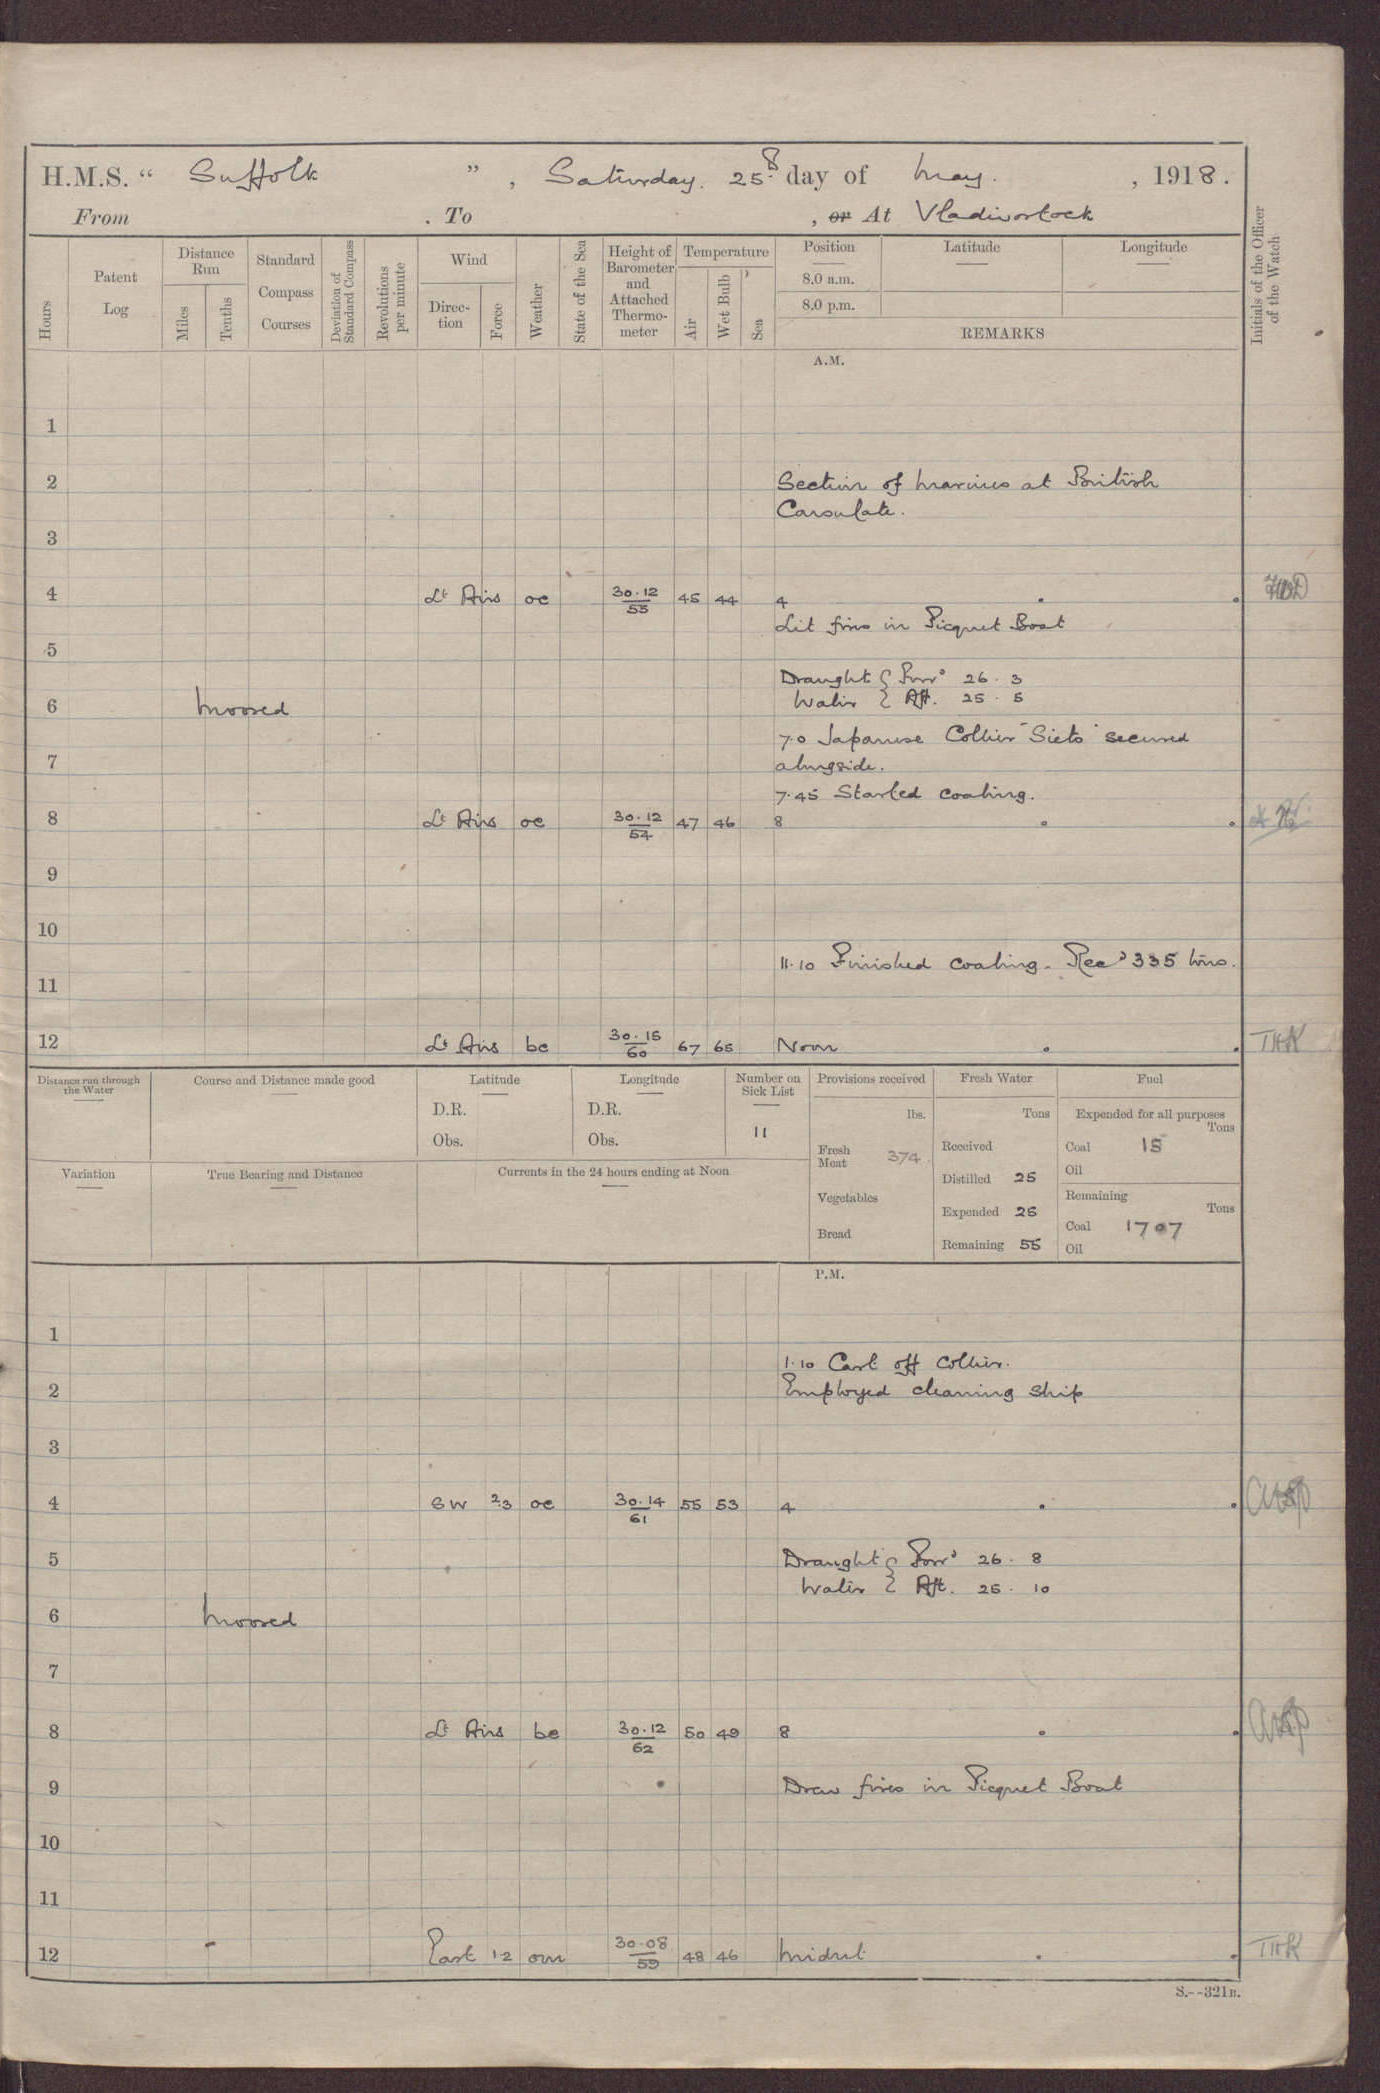 H.M.S. “ Suffolk ” , Saturday. 25th day of May. , 1918.
From . To , or At Vladivostock
Hours
Patent Log
Distance Run
Miles
Tenths
Standard Compass Courses
Deviation of Standard Compass
Revolutions per minute
Wind
Direction
Force
Weather
State of the Sea
Height of Barometer and Attached Thermometer
Temperature
Air
Wet Bulb
Sea
Position
Latitude
Longitude
8.0 a.m.
8.0 p.m.
REMARKS
Initials of the Officer of the Watch
A.M.
1
2 Section of Marines at British
Consulate.
3
4 Lt Airs oc 30.12 / 53 45 44 4 . .
Lit fires in Picquet Boat
5
Draught { Forrd 26 . 3
6 Moored Water { Aft. 25 . 5
7.0 Japanese Collier "Sieto" secured
7 alongside.
7.45 Started coaling.
8 Lt Airs oc 30.12 / 54 47 46 8 . .
9
10
11.10 Finished coaling. Recd 335 tons.
11
12 Lt Airs bc 30.15 / 60 67 65 Noon . . THK
Distance run through the Water
Course and Distance made good
Latitude
D.R.
Obs.
Longitude
D.R.
Obs.
Number on Sick List
11
Provisions received
lbs.
Fresh Meat 374.
Vegetables
Bread
Fresh Water
Tons
Received
Distilled 25
Expended 25
Remaining 55
Fuel
Expended for all purposes
Tons
Coal 15
Oil
Remaining
Tons
Coal 1707
Oil
Variation
True Bearing and Distance
Currents in the 24 hours ending at Noon
P.M.
1
1.10 Cast off collier.
2 Employed cleaning ship
3
4 SW 2.3 oc 30.14 / 61 55 53 4 . .
5 Draught { Forrd 26 . 8
Water { Aft. 25 . 10
6 Moored
7
8 Lt Airs bc 30.12 / 62 50 49 8 . .
9 Drew fires in Picquet Boat
10
11
12 East 1.2 om 30.08 / 59 48 46 Midnt . . THK
S.--321B.